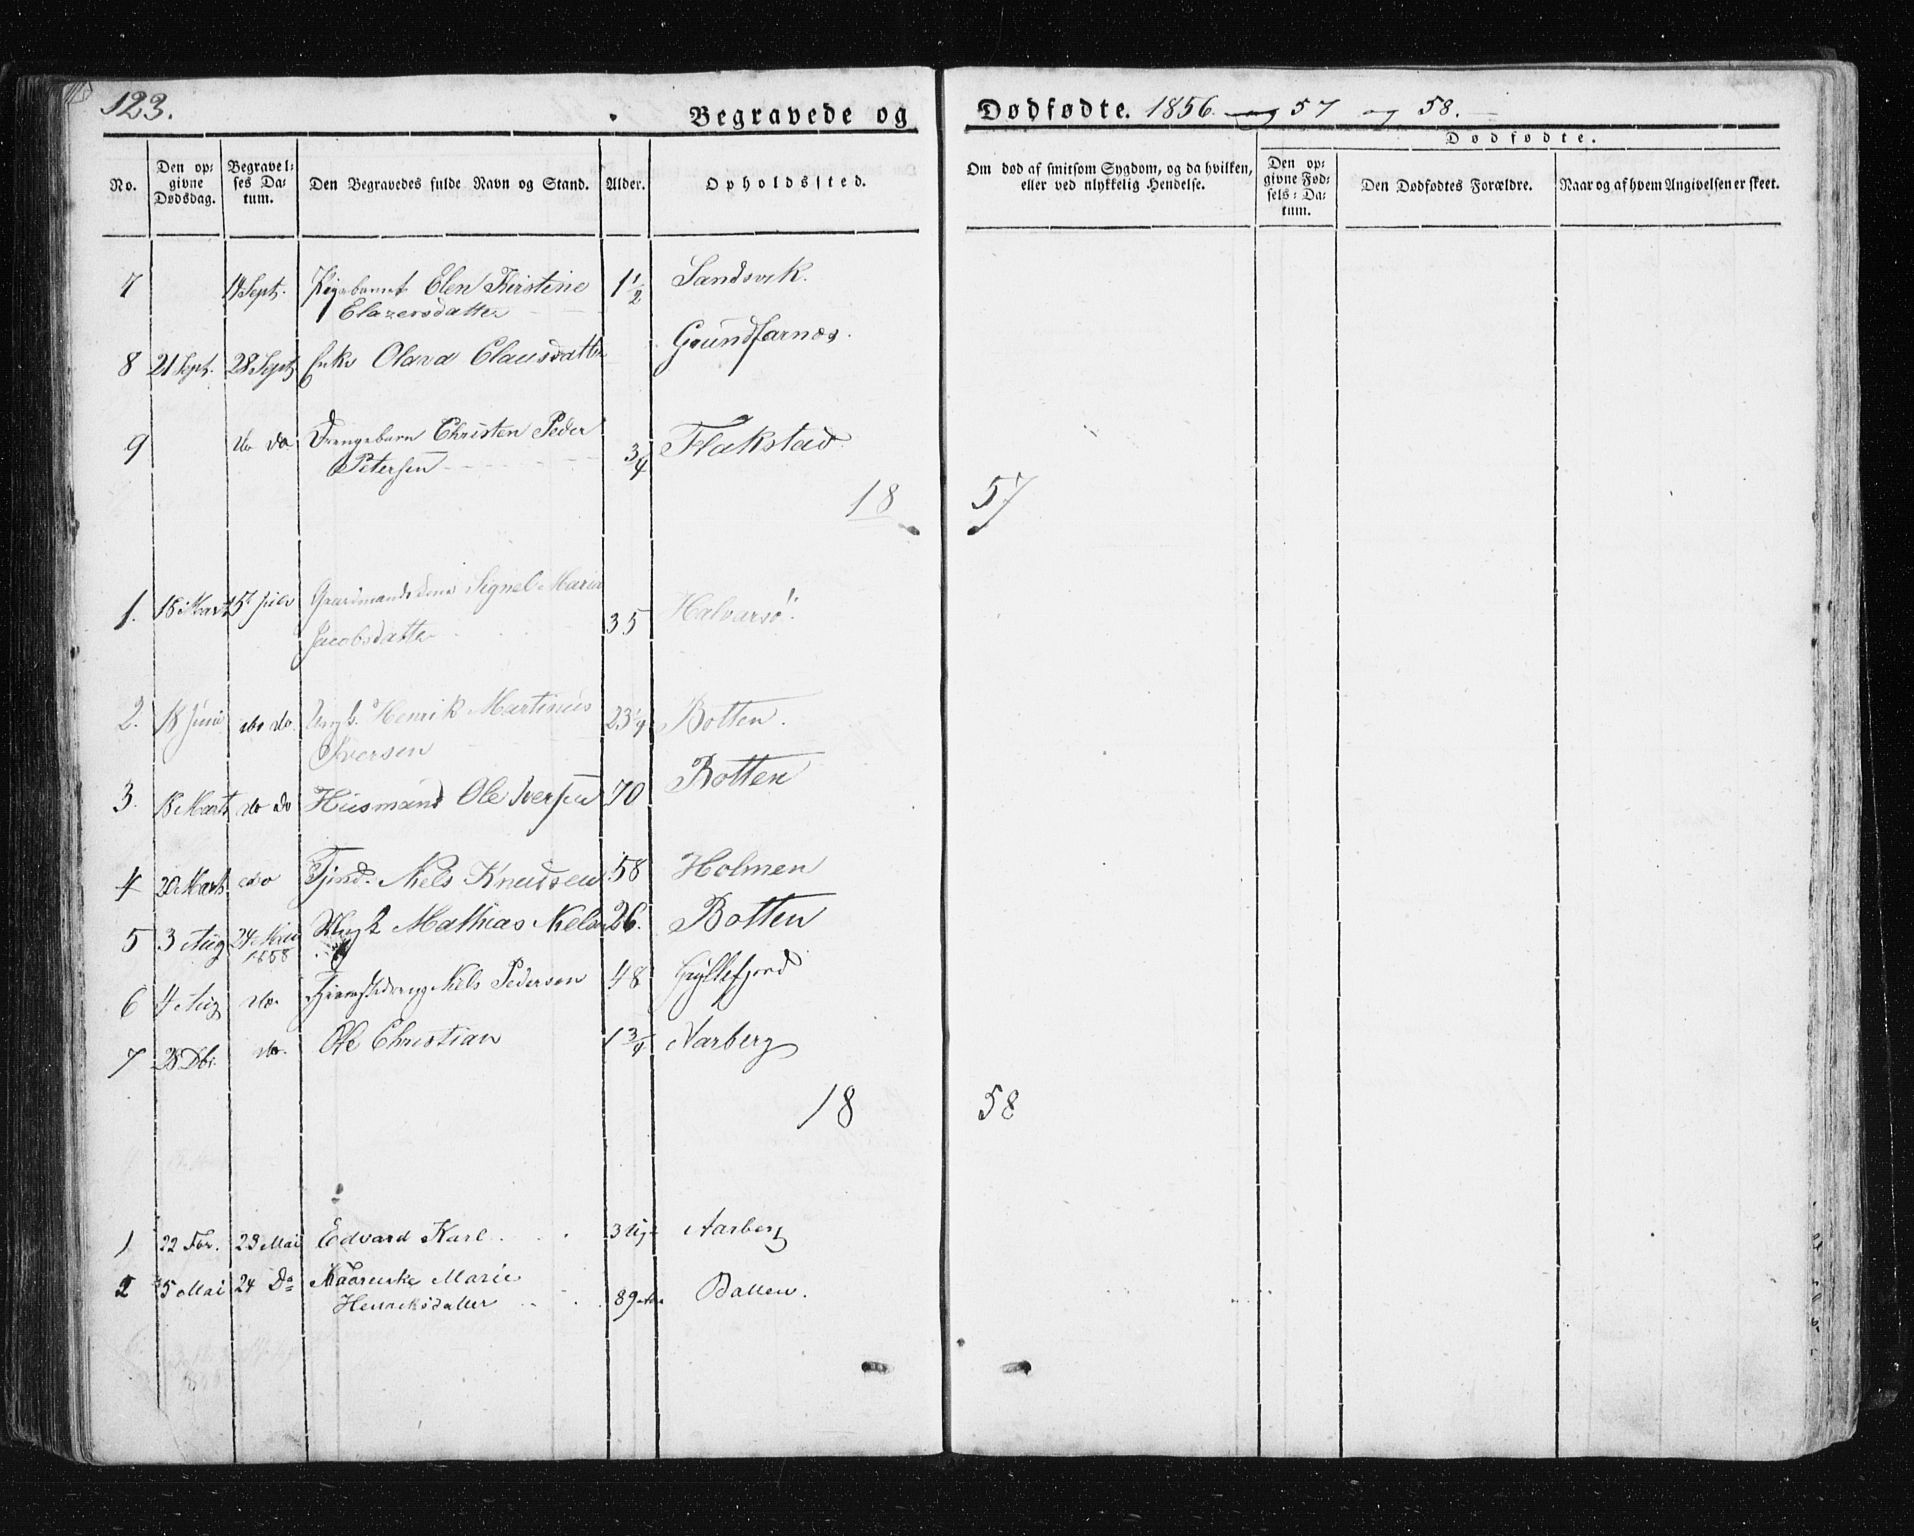 123.
Begravede og Dødfødte. 1856 og 57 og 58.
Dødfødte.
No.
Den opgivne Dødsdag.
Begravelses Datum.
Den Begravedes fulde Navn og Stand.
Alder.
Opholdssted.
Om død af smitsom Sygdom, og da hvilken, eller ved ulykkelig Hendelse.
Den opgivne Fødsels-Datum.
Den Dødfødtes Forældre.
Naar og af hvem Angivelsen er skeet.
7 14 Sept. Pigebarnet Elen Kirstine 1 1/2 Sandsvik.
Elazersdatter
8 21 Sept. 28 Sept. Enke Olava Clausdatter Grundfarnæs.
9 do do Drengebarn Christen Peder 3/4 Flakstad
Petersen
18 57
1. 18 Marts 5 Juli Gaardmandskone Signel Maria 35 Halvarsø.
Jacobsdatter
2. 18 Juni do do Ungk. Henrik Martinus 23 1/4 Botten.
Iversen
3. 18 Marts do do Husmand Ole Iversen 70 Botten
4 20 Marts do Tjend. Niels Knudsen 58 Holmen
5 3 Aug 24 Mai Ungk Mathias Nelsen 26. Botten
1858
6 4 Aug do. Niels Pedersen 48 Gryllefjord
7 28 Dbr. do. Ole Christian 1 3/4 Aarberg
18 58
1 22 Fbr. 23 Mai Edvard Karl 3 Ug. Aarberg
2 5 Mai 24 Do Marie 89 Aar Ballen.
Henriksdatter